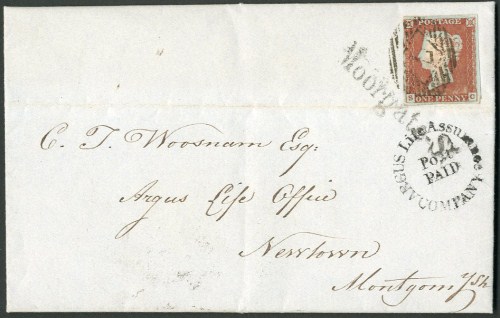 POSTAGE
S C
ONE PENNY
Moorgate
ARGUS LIFE ASSURANCE COMPANY
POST
PAID
C. T. Woosnam Esq:
Argus Life Office
Newtown
Montgomysh